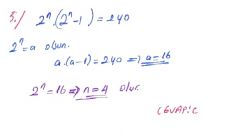 5./ 2ⁿ.(2ⁿ-1) = 240
2ⁿ=a olsun.
a.(a-1)=240 ⇒ a=16
2ⁿ=16 ⇒ n=4 olur.
CEVAP: C